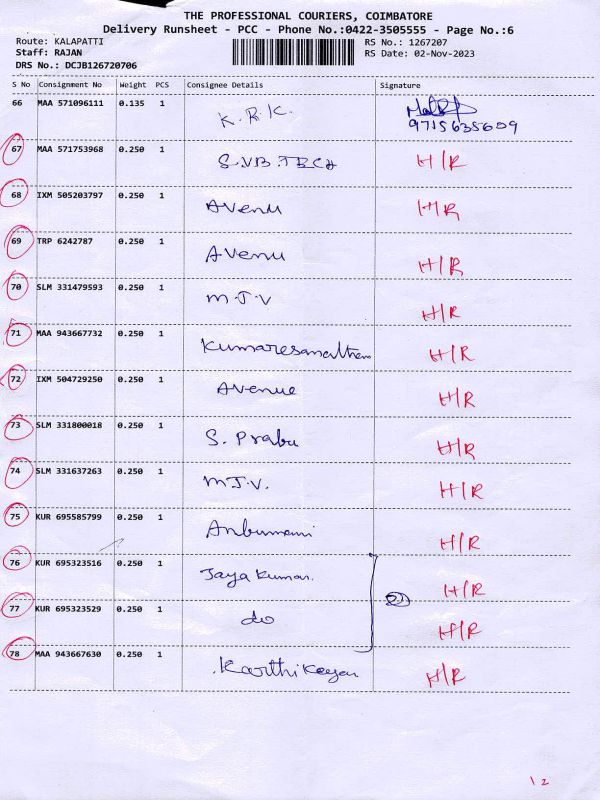 THE PROFESSIONAL COURIERS, COIMBATORE
Delivery Runsheet - PCC - Phone No.:0422-3505555 - Page No.:6
Route: KALAPATTI RS No.: 1267207
Staff: RAJAN RS Date: 02-Nov-2023
DRS No.: DCJB126720706
S No Consignment No Weight PCS Consignee Details Signature
66 MAA 571096111 0.135 1 K.R.K.
9715635609
67 MAA 571753968 0.250 1 S.VB.TECH H/R
68 IXM 505203797 0.250 1 Avenu H/R
69 TRP 6242787 0.250 1 Avenu H/R
70 SLM 331479593 0.250 1 M.J.V H/R
71 MAA 943667732 0.250 1 H/R
72 IXM 504729250 0.250 1 Avenue H/R
73 SLM 331800018 0.250 1 S. Prabu H/R
74 SLM 331637263 0.250 1 M.J.V. H/R
75 KUR 695585799 0.250 1 Anbumani H/R
76 KUR 695323516 0.250 1 Jaya Kumar. H/R
77 KUR 695323529 0.250 1 do H/R
78 MAA 943667630 0.250 1 Karthikeyan H/R
12